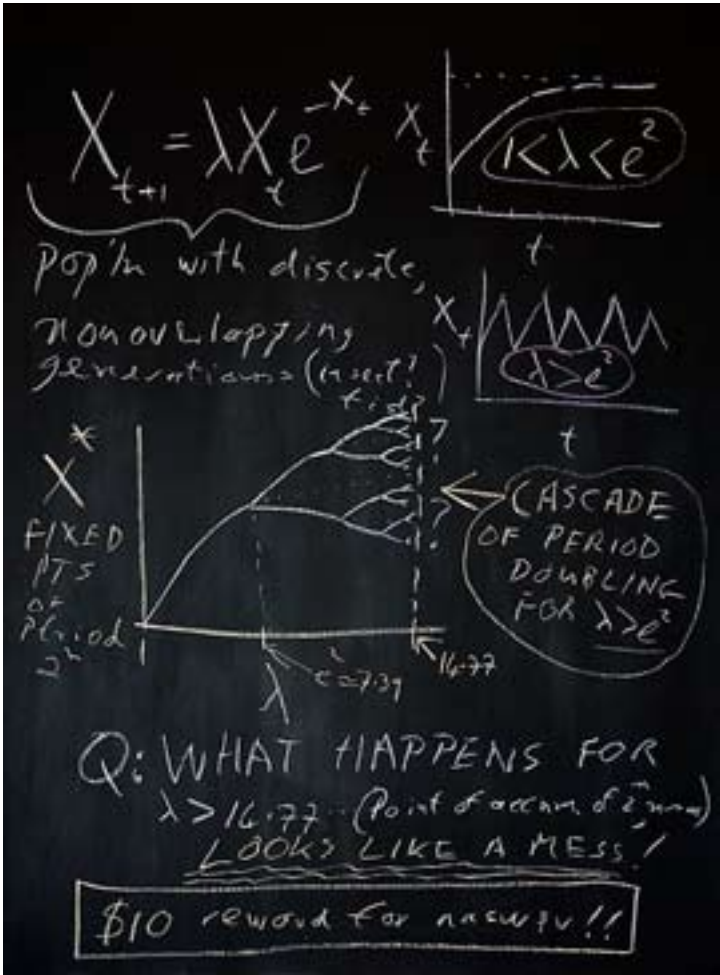 X_{t+1} = λX_t e^{-X_t}
X_t
1<λ<e²
t
Pop'ln with discrete,
nonoverlapping
generations (insect?
X_t
λ>e²
t
X*
FIXED
PTS
OF
Period
2ⁿ
? ?
CASCADE
OF PERIOD
DOUBLING
FOR λ>e²
1
λ
e²=7.39
14.77
Q: WHAT HAPPENS FOR
λ>14.77 (Point of accum of
LOOKS LIKE A MESS!
$10 reward for answer!!